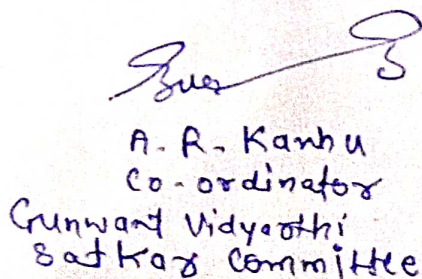 A. R. Kanhu
Co-ordinator
Gunwant Vidyarthi
Satkar Committee